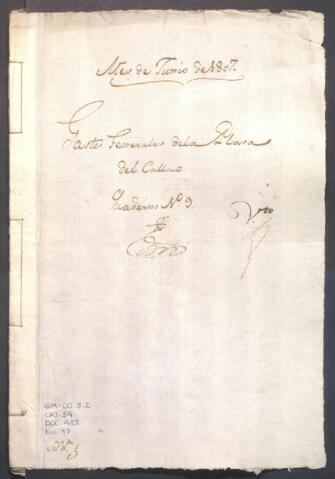 Mes de Junio de 1807.
Gastos Generales de la Plaza
del Callao.
Quaderno Nº 3.
GM-CO 3-2
CAJ. 34
DOC. 457